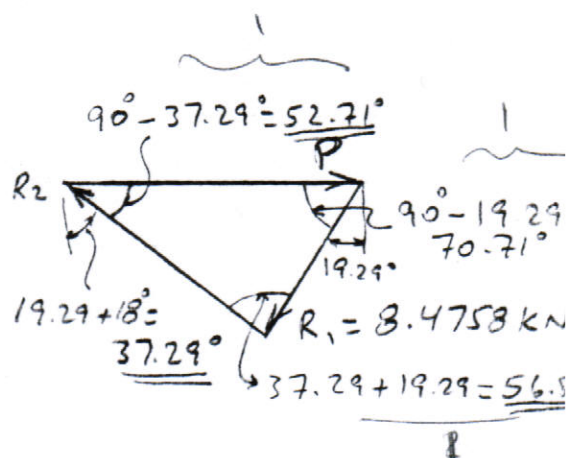 1
90° - 37.29° = 52.71°
P
1
R2
90° - 19.29
70.71°
19.29°
19.29 + 18° =
37.29°
R1 = 8.4758 KN
37.29 + 19.29 = 56.5
1